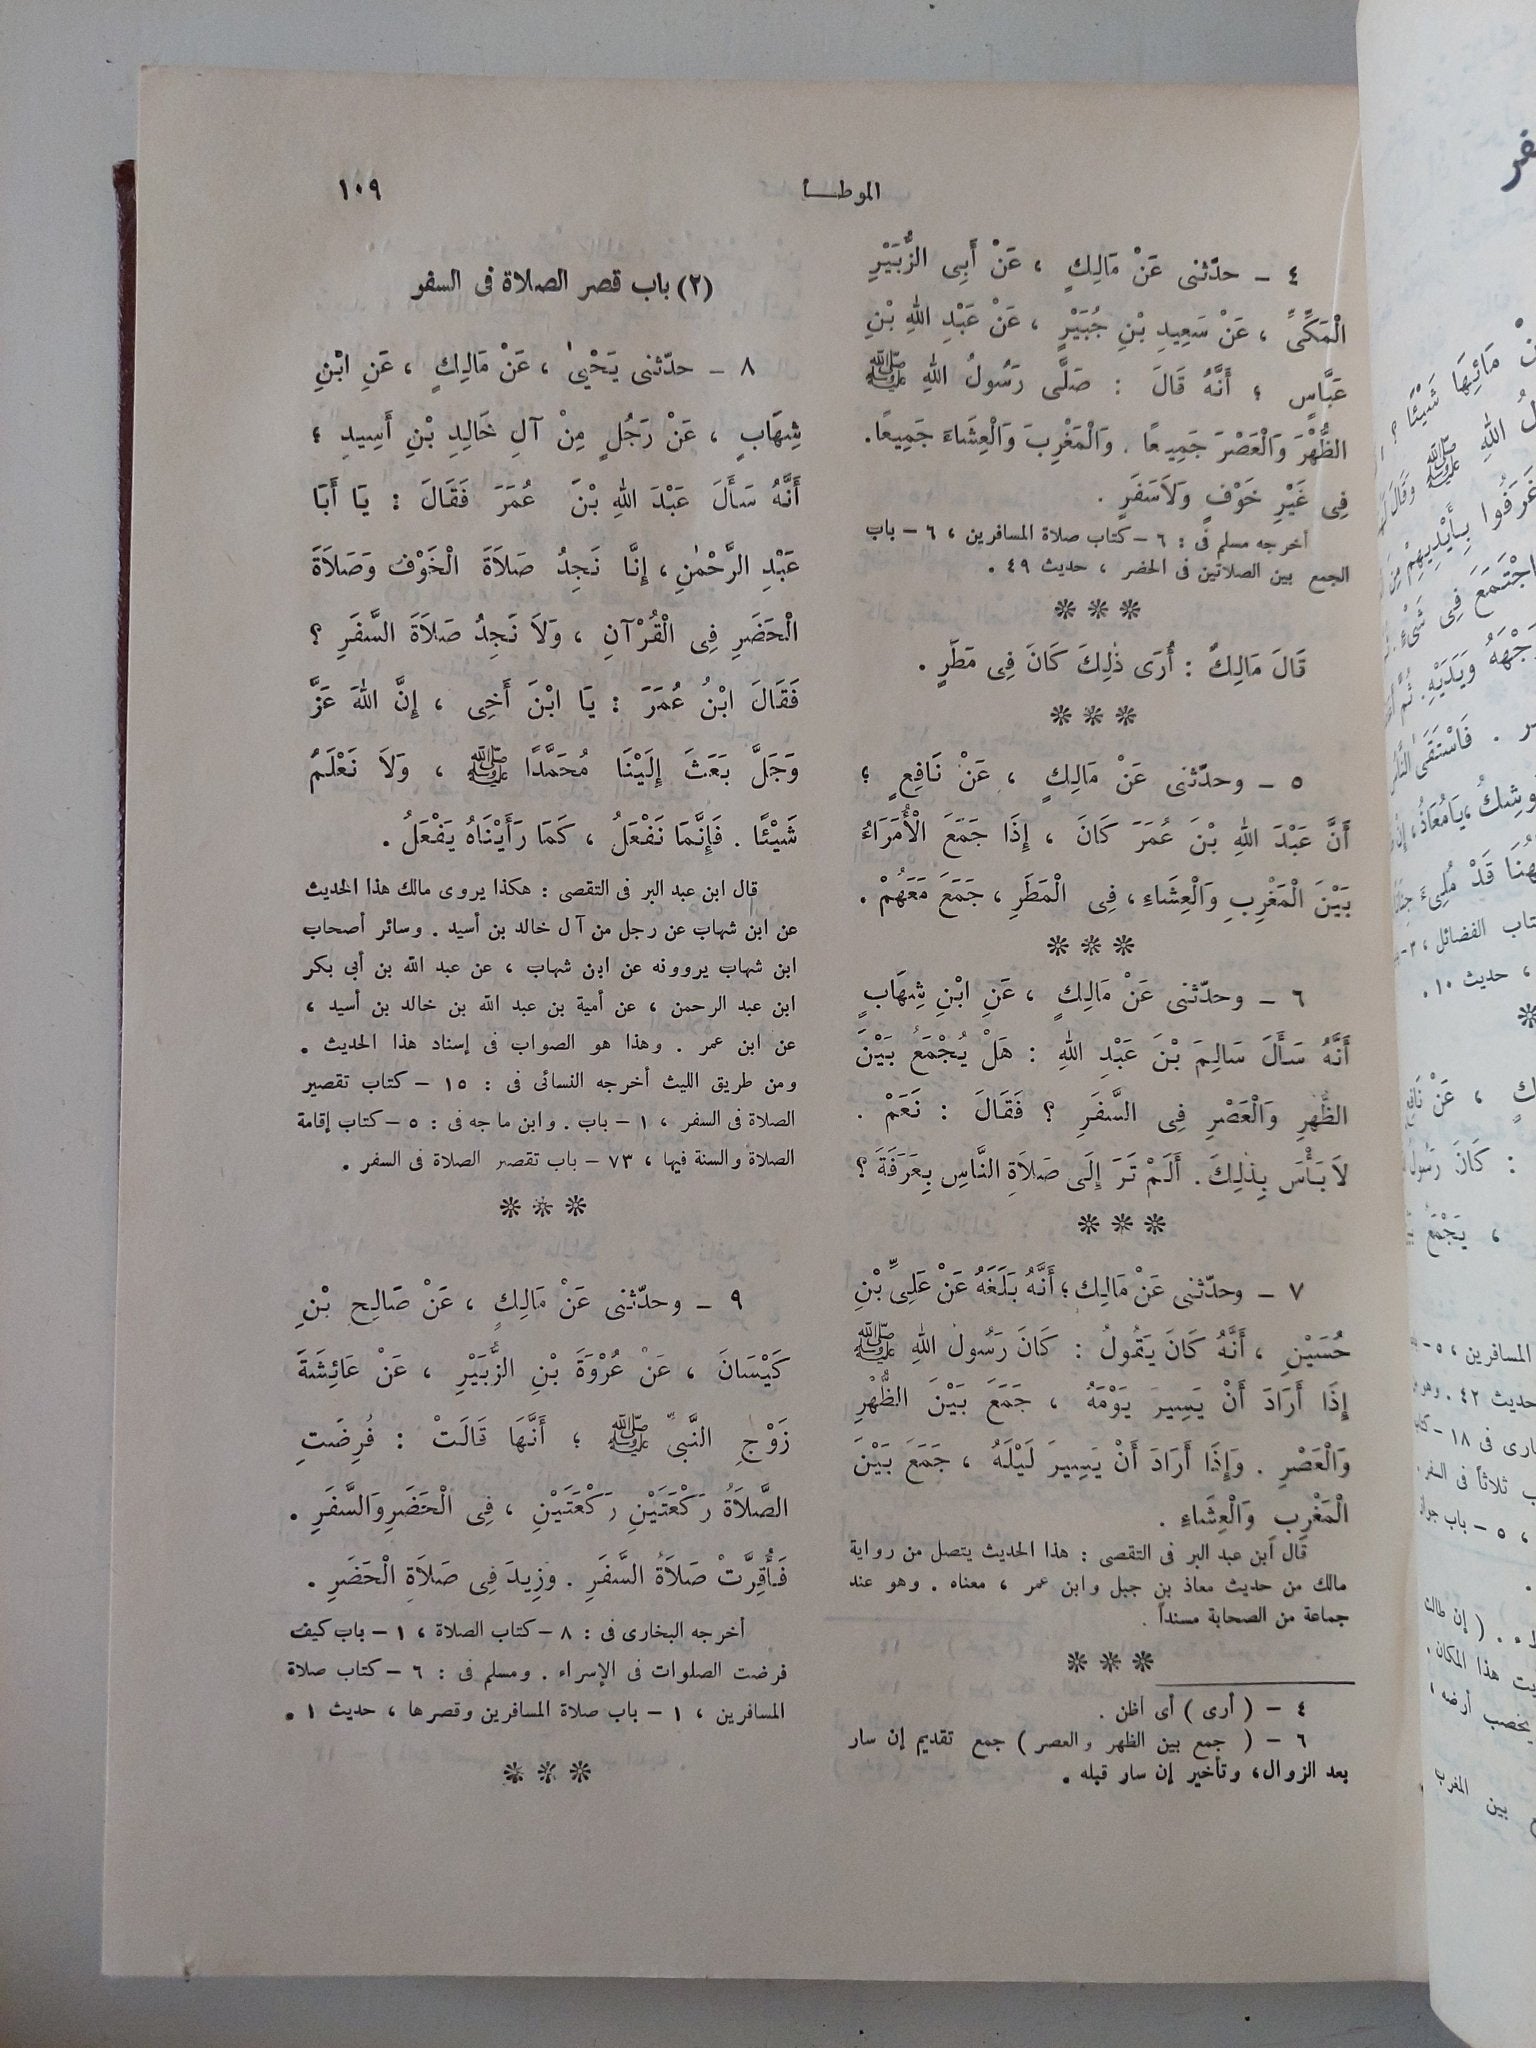 الموطأ
١٠٩
٤ – حدّثنى عَنْ مَالِكٍ ، عَنْ أَبِى الزُّبَيْرِ
الْمَكِّىِّ ، عَنْ سَعِيدِ بْنِ جُبَيْرٍ ، عَنْ عَبْدِ اللهِ بْنِ
عَبَّاسٍ ؛ أَنَّهُ قَالَ : صَلَّى رَسُولُ اللهِ ﷺ
الظُّهْرَ وَالْعَصْرَ جَمِيعًا . وَالْمَغْرِبَ وَالْعِشَاءَ جَمِيعًا.
فِى غَيْرِ خَوْفٍ وَلاَ سَفَرٍ .
أخرجه مسلم فى : ٦ – كتاب صلاة المسافرين ، ٦ – باب
الجمع بين الصلاتين فى الحضر ، حديث ٤٩ .
❊ ❊ ❊
قَالَ مَالِكٌ : أُرَى ذٰلِكَ كَانَ فِى مَطَرٍ .
❊ ❊ ❊
٥ – وحدّثنى عَنْ مَالِكٍ ، عَنْ نَافِعٍ ؛
أَنَّ عَبْدَ اللهِ بْنَ عُمَرَ كَانَ ، إِذَا جَمَعَ الْأُمَرَاءُ
بَيْنَ الْمَغْرِبِ وَالْعِشَاءِ ، فِى الْمَطَرِ ، جَمَعَ مَعَهُمْ .
❊ ❊ ❊
٦ – وحدّثنى عَنْ مَالِكٍ ، عَنِ ابْنِ شِهَابٍ
أَنَّهُ سَأَلَ سَالِمَ بْنَ عَبْدِ اللهِ : هَلْ يُجْمَعُ بَيْنَ
الظُّهْرِ وَالْعَصْرِ فِى السَّفَرِ ؟ فَقَالَ : نَعَمْ .
لاَ بَأْسَ بِذٰلِكَ . أَلَمْ تَرَ إِلَى صَلاَةِ النَّاسِ بِعَرَفَةَ ؟
❊ ❊ ❊
٧ – وحدّثنى عَنْ مَالِك ؛ أَنَّهُ بَلَغَهُ عَنْ عَلِىِّ بْنِ
حُسَيْنٍ ، أَنَّهُ كَانَ يَقُولُ : كَانَ رَسُولُ اللهِ ﷺ
إِذَا أَرَادَ أَنْ يَسِيرَ يَوْمَهُ ، جَمَعَ بَيْنَ الظُّهْرِ
وَالْعَصْرِ . وَإِذَا أَرَادَ أَنْ يَسِيرَ لَيْلَهُ ، جَمَعَ بَيْنَ
الْمَغْرِبِ وَالْعِشَاءِ .
قال ابن عبد البر فى التقصى : هذا الحديث يتصل من رواية
مالك من حديث معاذ بن جبل وابن عمر ، معناه . وهو عند
جماعة من الصحابة مسنداً .
❊ ❊ ❊
٤ – ( أرى ) أى أظن .
٦ – ( جمع بين الظهر والعصر ) جمع تقديم إن سار
بعد الزوال، وتأخير إن سار قبله .
(٢) باب قصر الصلاة فى السفر
٨ – حدّثنى يَحْيىٰ ، عَنْ مَالِكٍ ، عَنِ ابْنِ
شِهَابٍ ، عَنْ رَجُلٍ مِنْ آلِ خَالِدِ بْنِ أَسِيدِ ؛
أَنَّهُ سَأَلَ عَبْدَ اللهِ بْنَ عُمَرَ فَقَالَ : يَا أَبَا
عَبْدِ الرَّحْمٰنِ ، إِنَّا نَجِدُ صَلاَةَ الْخَوْفِ وَصَلاَةَ
الْحَضَرِ فِى الْقُرْآنِ ، وَلاَ نَجِدُ صَلاَةَ السَّفَرِ ؟
فَقَالَ ابْنُ عُمَرَ : يَا ابْنَ أَخِى ، إِنَّ اللهَ عَزَّ
وَجَلَّ بَعَثَ إِلَيْنَا مُحَمَّدًا ﷺ ، وَلاَ نَعْلَمُ
شَيْئًا . فَإِنَّمَا نَفْعَلُ ، كَمَا رَأَيْنَاهُ يَفْعَلُ .
قال ابن عبد البر فى التقصى : هكذا يروى مالك هذا الحديث
عن ابن شهاب عن رجل من آل خالد بن أسيد . وسائر أصحاب
ابن شهاب يروونه عن ابن شهاب ، عن عبد الله بن أبى بكر
ابن عبد الرحمن ، عن أمية بن عبد الله بن خالد بن أسيد ،
عن ابن عمر . وهذا هو الصواب فى إسناد هذا الحديث .
ومن طريق الليث أخرجه النسائى فى : ١٥ – كتاب تقصير
الصلاة فى السفر ، ١ – باب . وابن ماجه فى : ٥ – كتاب إقامة
الصلاة والسنة فيها ، ٧٣ – باب تقصير الصلاة فى السفر .
❊ ❊ ❊
٩ – وحدّثنى عَنْ مَالِكٍ ، عَنْ صَالِحِ بْنِ
كَيْسَانَ ، عَنْ عُرْوَةَ بْنِ الزُّبَيْرِ ، عَنْ عَائِشَةَ
زَوْجِ النَّبِىِّ ﷺ ؛ أَنَّهَا قَالَتْ : فُرِضَتِ
الصَّلاَةُ رَكْعَتَيْنِ رَكْعَتَيْنِ ، فِى الْحَضَرِ وَالسَّفَرِ .
فَأُقِرَّتْ صَلاَةُ السَّفَرِ . وَزِيدَ فِى صَلاَةِ الْحَضَرِ .
أخرجه البخارى فى : ٨ – كتاب الصلاة ، ١ – باب كيف
فرضت الصلوات فى الإسراء . ومسلم فى : ٦ – كتاب صلاة
المسافرين ، ١ – باب صلاة المسافرين وقصرها ، حديث ١ .
❊ ❊ ❊